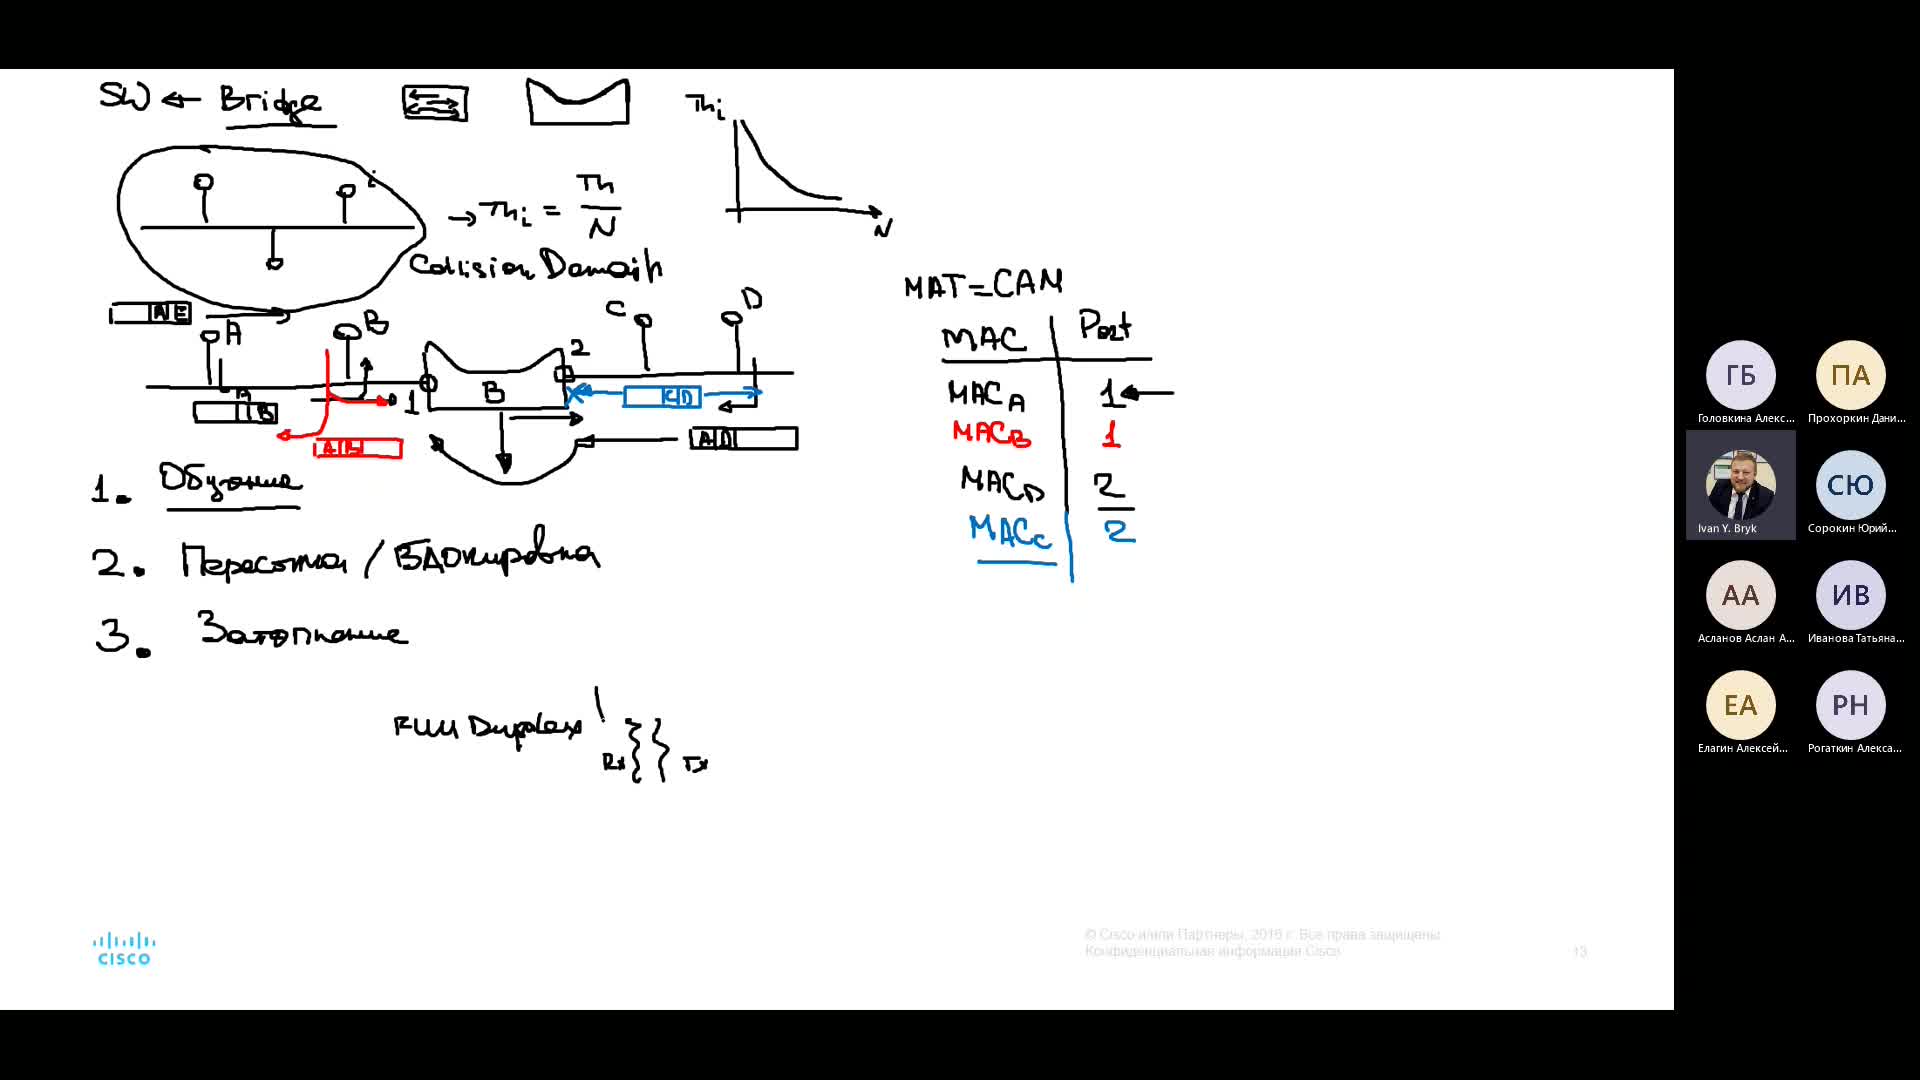 SW ← Bridge
Thi
i
→ Thi = Th / N
N
Collision Domain
MAT = CAM
A E
A
B
C
D
2
1
B
MAC Port
A
B
C D
MAC A 1
A B
A D
MAC B 1
1. Обучение
MAC D 2
MAC C 2
2. Пересылка / Блокировка
3. Затопление
Full Duplex
Rx Tx
CISCO
© Cisco и/или Партнеры, 2016 г. Все права защищены.
Конфиденциальная информация Cisco
13
ГБ ПА
Головкина Алекс... Прохоркин Дани...
СЮ
Ivan Y. Bryk Сорокин Юрий...
АА ИВ
Асланов Аслан А... Иванова Татьяна...
ЕА РН
Елагин Алексей... Рогаткин Алекса...